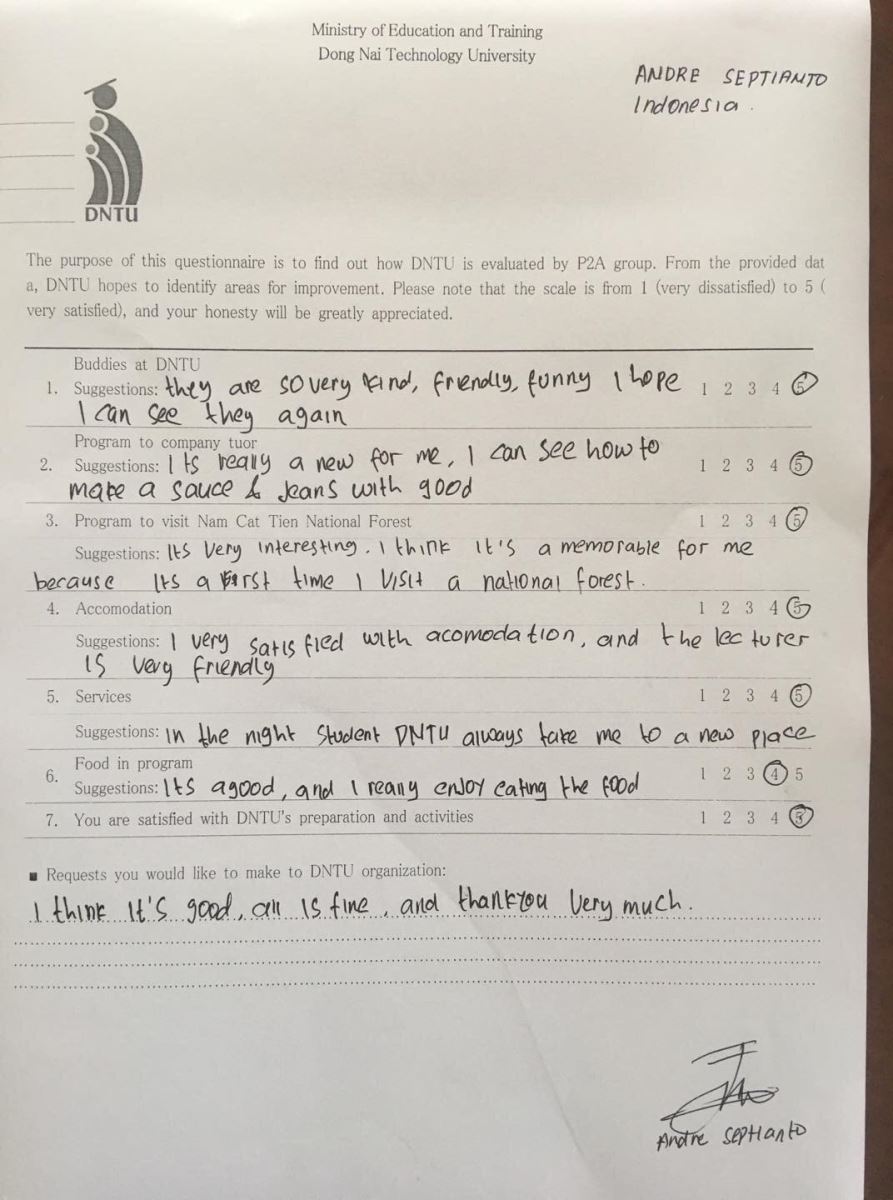 Ministry of Education and Training
Dong Nai Technology University
ANDRE SEPTIANTO
Indonesia.
DNTU
The purpose of this questionnaire is to find out how DNTU is evaluated by P2A group. From the provided dat
a, DNTU hopes to identify areas for improvement. Please note that the scale is from 1 (very dissatisfied) to 5 (
very satisfied), and your honesty will be greatly appreciated.
Buddies at DNTU
1. Suggestions: they are so very kind, friendly, funny I hope 1 2 3 4 5
I can see they again
Program to company tuor
2. Suggestions: Its really a new for me, I can see how to 1 2 3 4 5
make a sauce & Jeans with good
3. Program to visit Nam Cat Tien National Forest 1 2 3 4 5
Suggestions: Its very interesting. I think it's a memorable for me
because Its a first time I visit a national forest.
4. Accomodation 1 2 3 4 5
Suggestions: I very satisfied with acomodation, and the lecturer
is very friendly
5. Services 1 2 3 4 5
Suggestions: in the night student DNTU always take me to a new place
Food in program
6. 1 2 3 4 5
Suggestions: Its agood, and I really enjoy eating the food
7. You are satisfied with DNTU's preparation and activities 1 2 3 4 5
■ Requests you would like to make to DNTU organization:
I think It's good, all is fine, and thankyou very much.
Andre Septianto